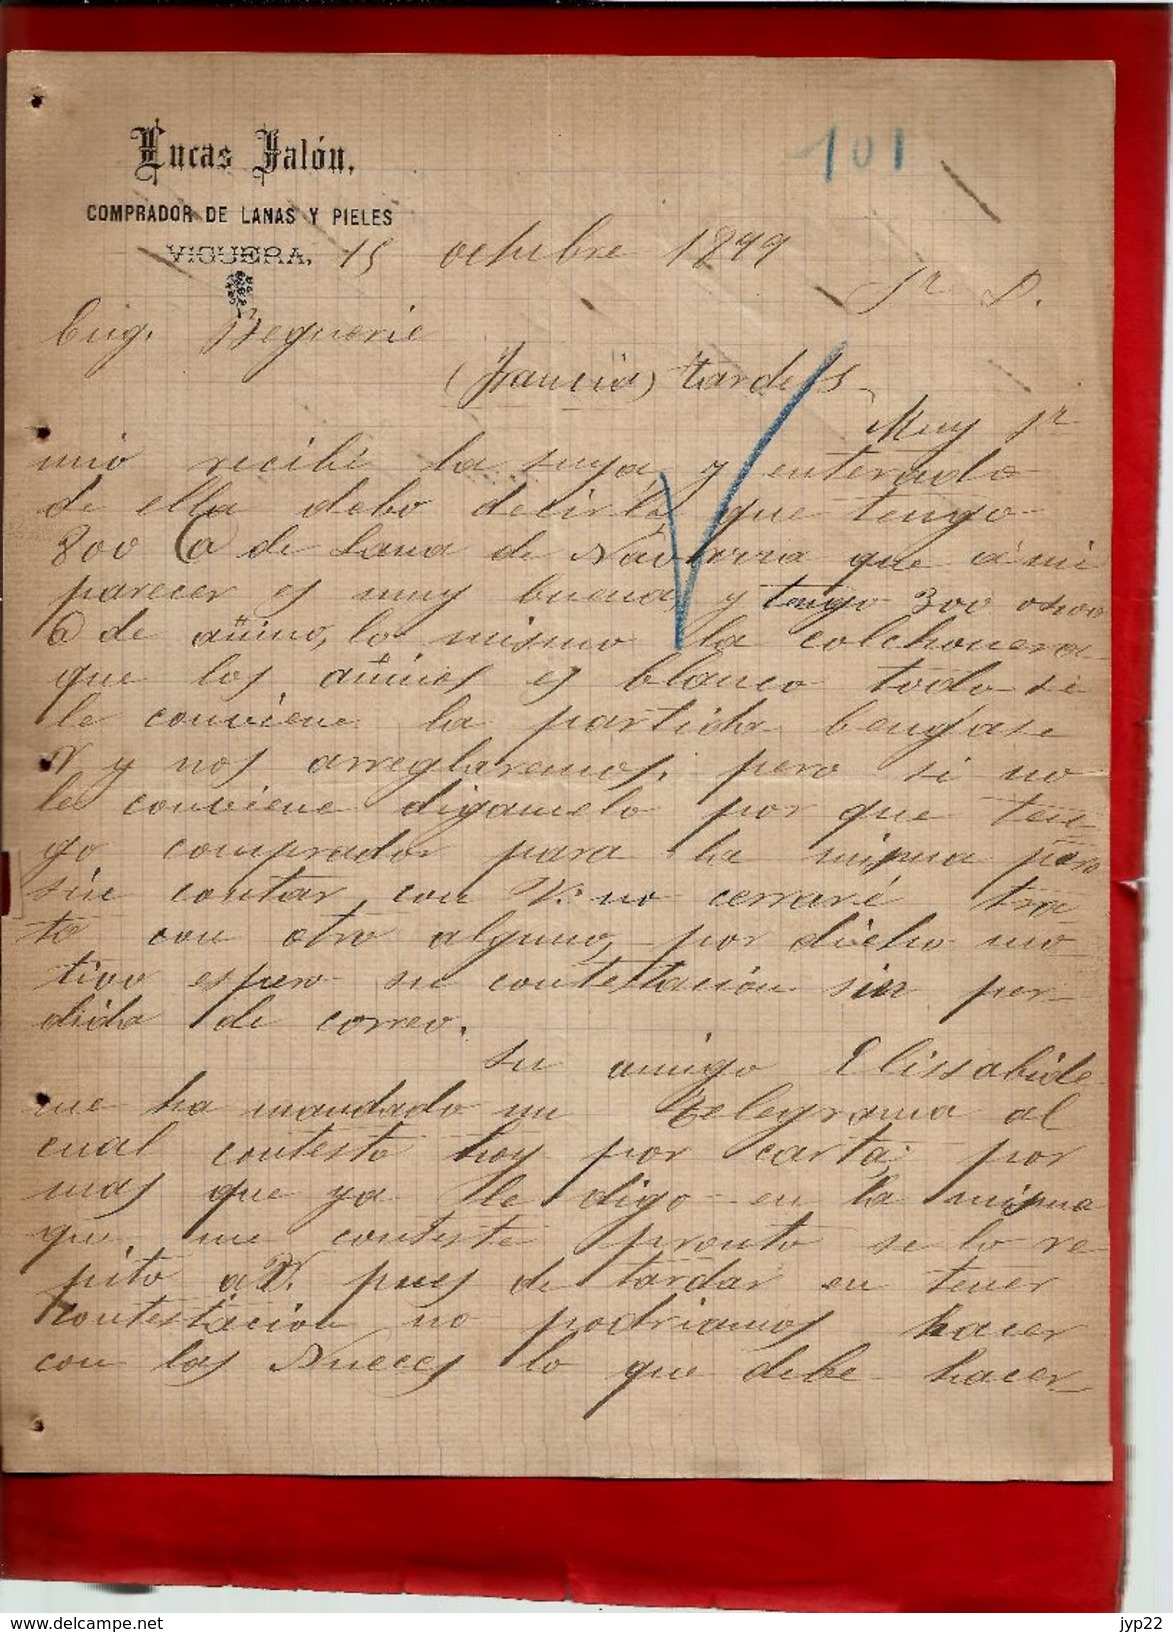 Lucas Jalón,
101
COMPRADOR DE LANAS Y PIELES
VIGUERA, 15 octubre 1899
Sr D.
Eug.
(Francia) tardets
Muy Sr
mio recibi la suya, y enterado
de ella debo decirle, que tengo
800 @ de lana de Navarra que á mi
parecer es muy buena, y tengo 300
@ de añino, lo mismo la colchonera
que los añinos es blanco todo si
le conviene la partida bengase
V y nos arreglaremos, pero si no
le conviene digamelo por que ten
go comprador para la misma pero
sin contar con V. no cerraré tra
to con otro alguno, por dicho mo
tivo espero su contestación sin per-
dida de correo.
Su amigo Elissabide
me ha mandado un telegrama al
cual contesto hoy por carta; por
mas que ya le digo en la misma
que me conteste pronto se lo re
pito a V. pues de tardar en tener
contestacion no podriamos hacer
con las Nueces lo que debe hacer
www.delcampe.net
jyp22